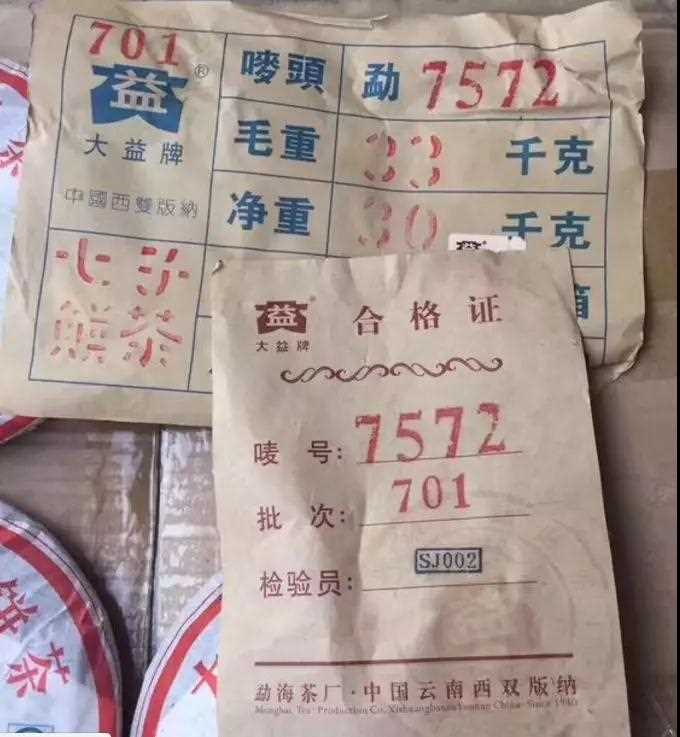 701
益®
大益牌
中國西雙版納
嘜頭 勐7572
毛重 33 千克
净重 30 千克
七子
餅茶
箱
益®
大益牌
合格证
唛号: 7572
批次: 701
检验员: SJ002
勐海茶厂·中国云南西双版纳
Menghai Tea Production Co. Xishuangbanna Yunnan China Since 1940
茶
饼茶